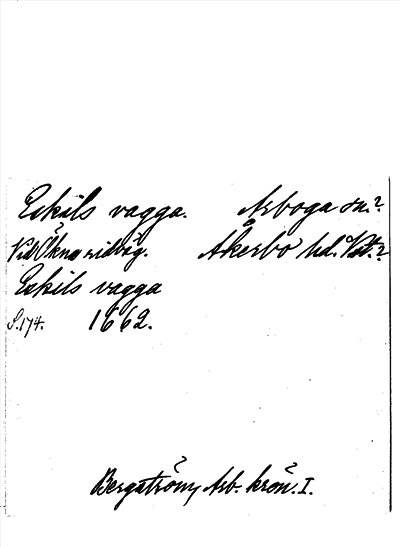 Eskils vagga. Arboga sn.?
Vid Ökna ridväg. Åkerbo hd. Vstm.?
Eskils vagga
S.174. 1662.
Bergström, Arb. krön. I.